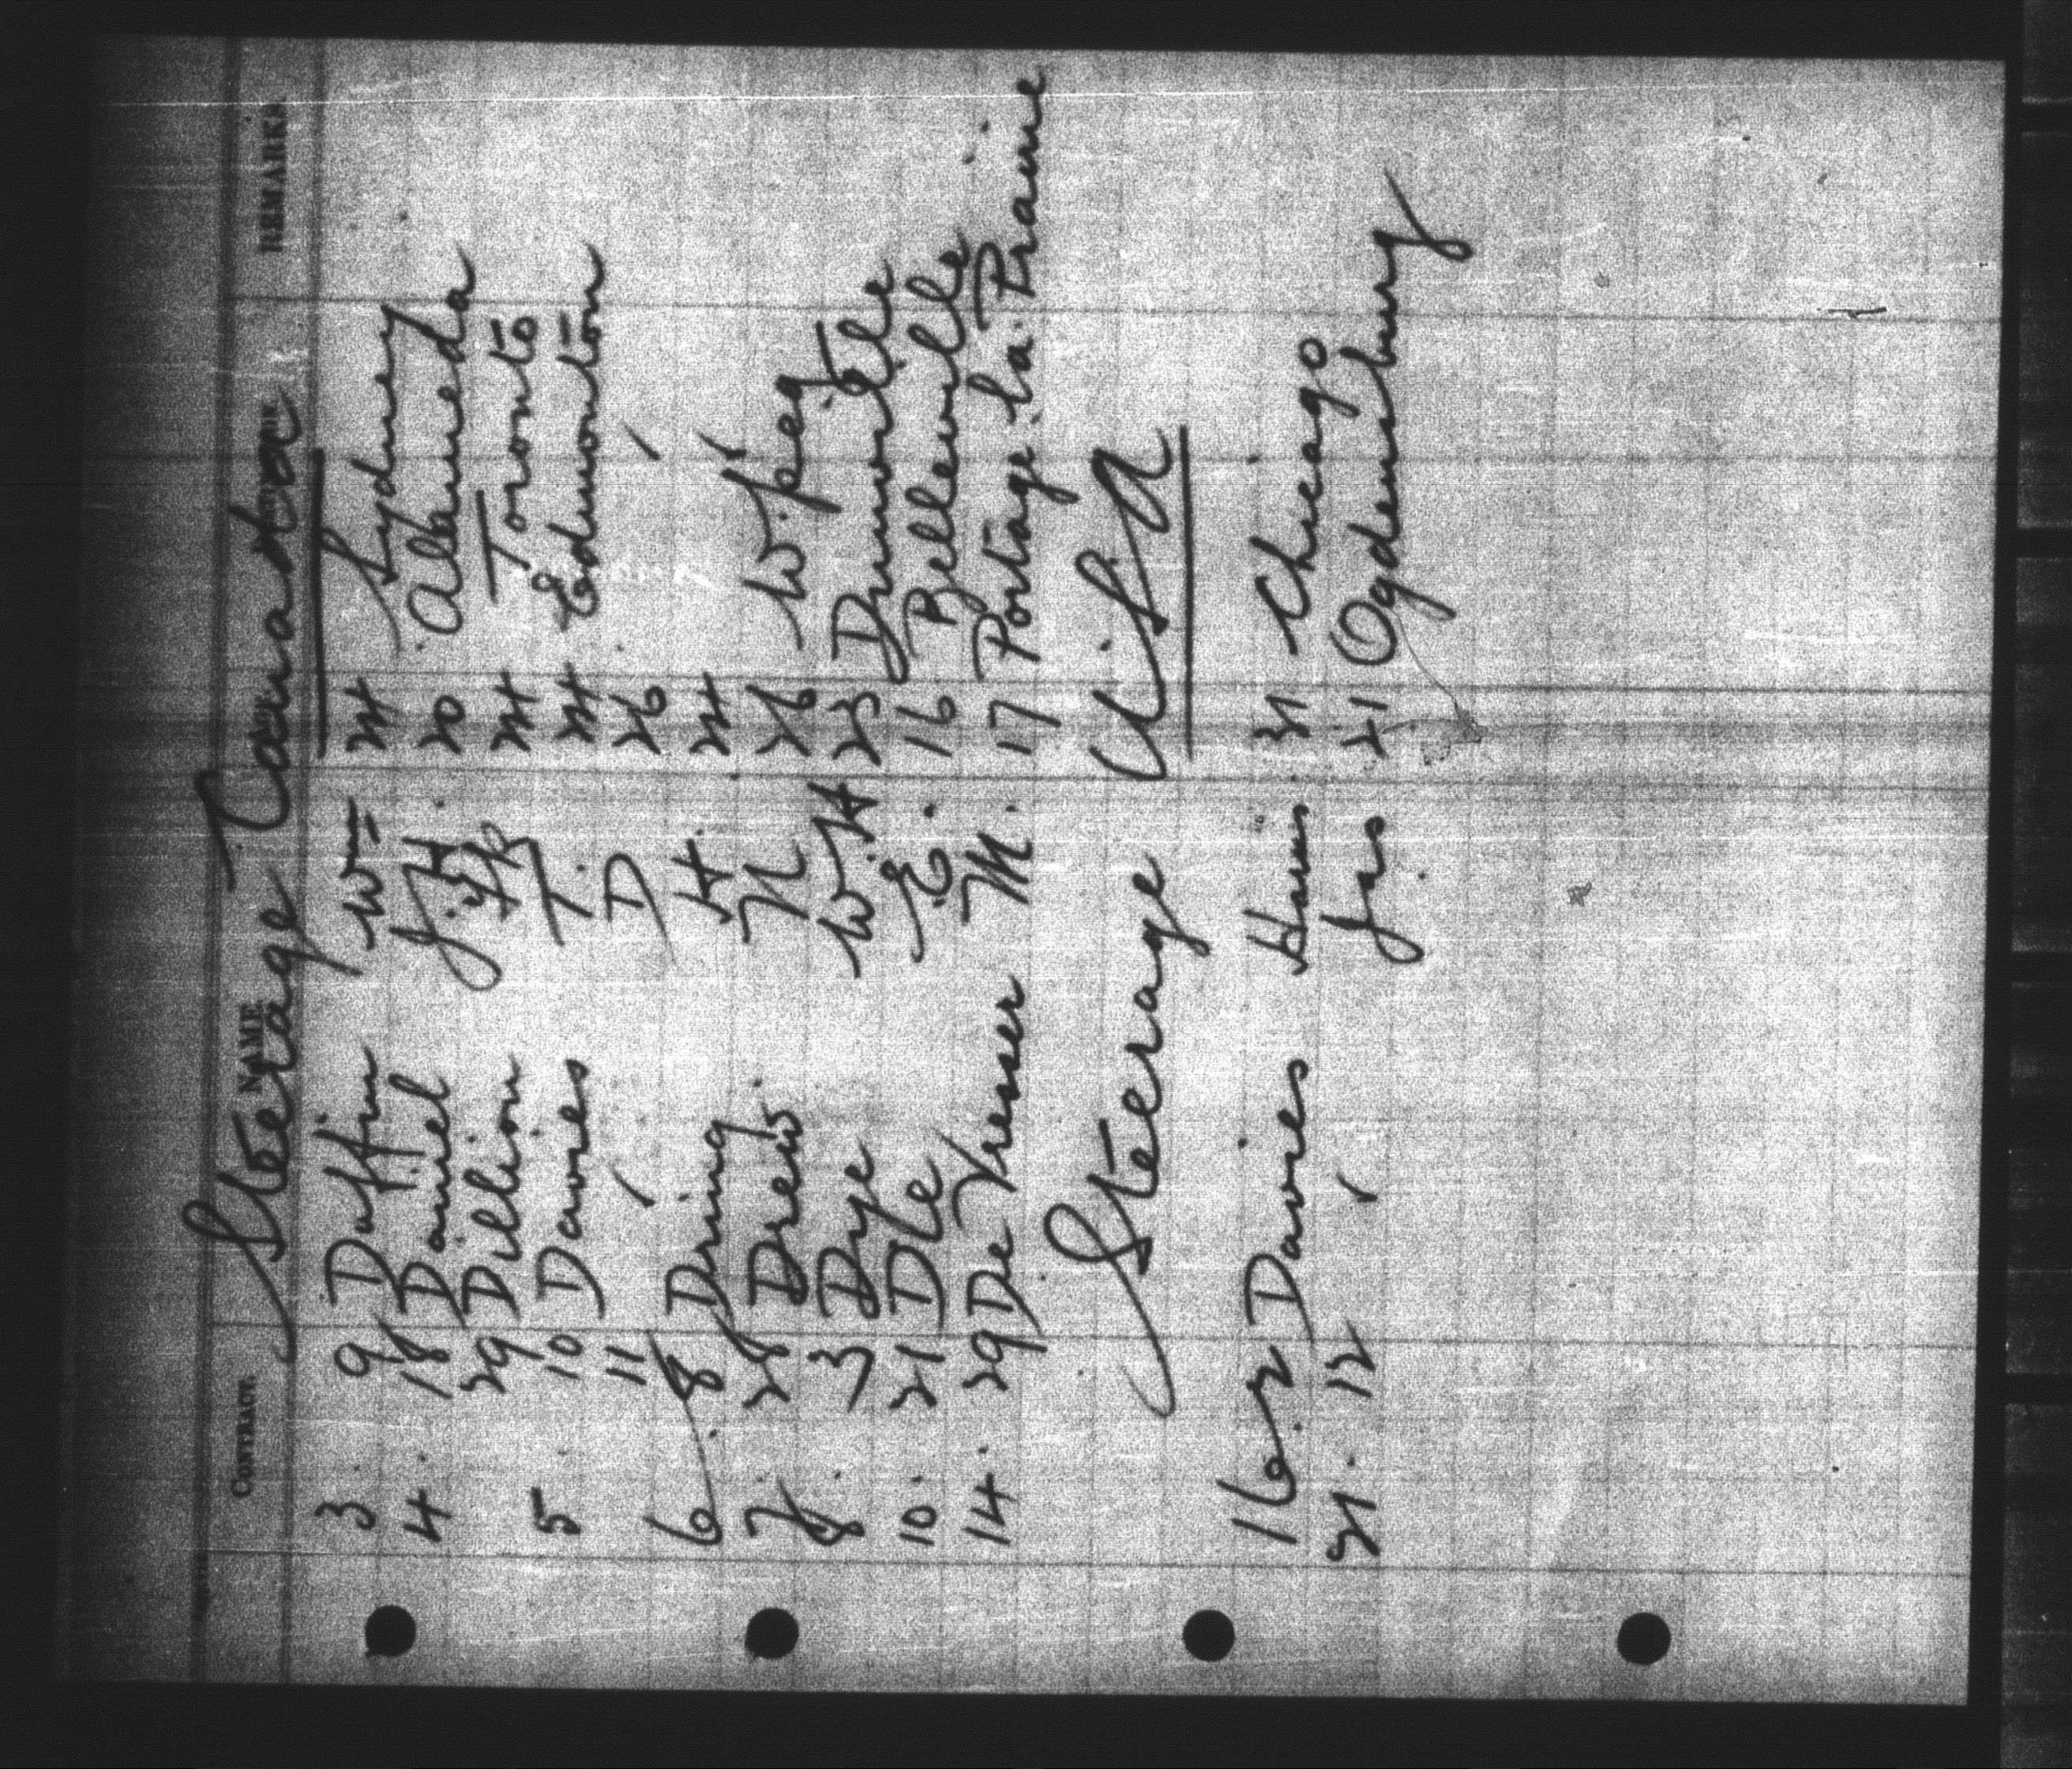 CONTRACT. NAME REMARKS
Steerage Canada
3. 9 Duffin Wm 24 Sydney
4. 18 Daniel J.H. 20 Alameda
29 Dillion 24 Toronto
5 10 Davies T. 24 Edmonton
11 " D 26 "
6. 8 Dring H. 24 "
7. 28 Drews N 26 W.peg
8. 3 Dye W.H 25
10. 21 Dle E. 16 Belleville
14. 29 De Vresser M. 17 Portage la Prairie
Steerage USA
16 Davies Hans 31 Chicago
21. 12 " Jas 21 Ogdensburg